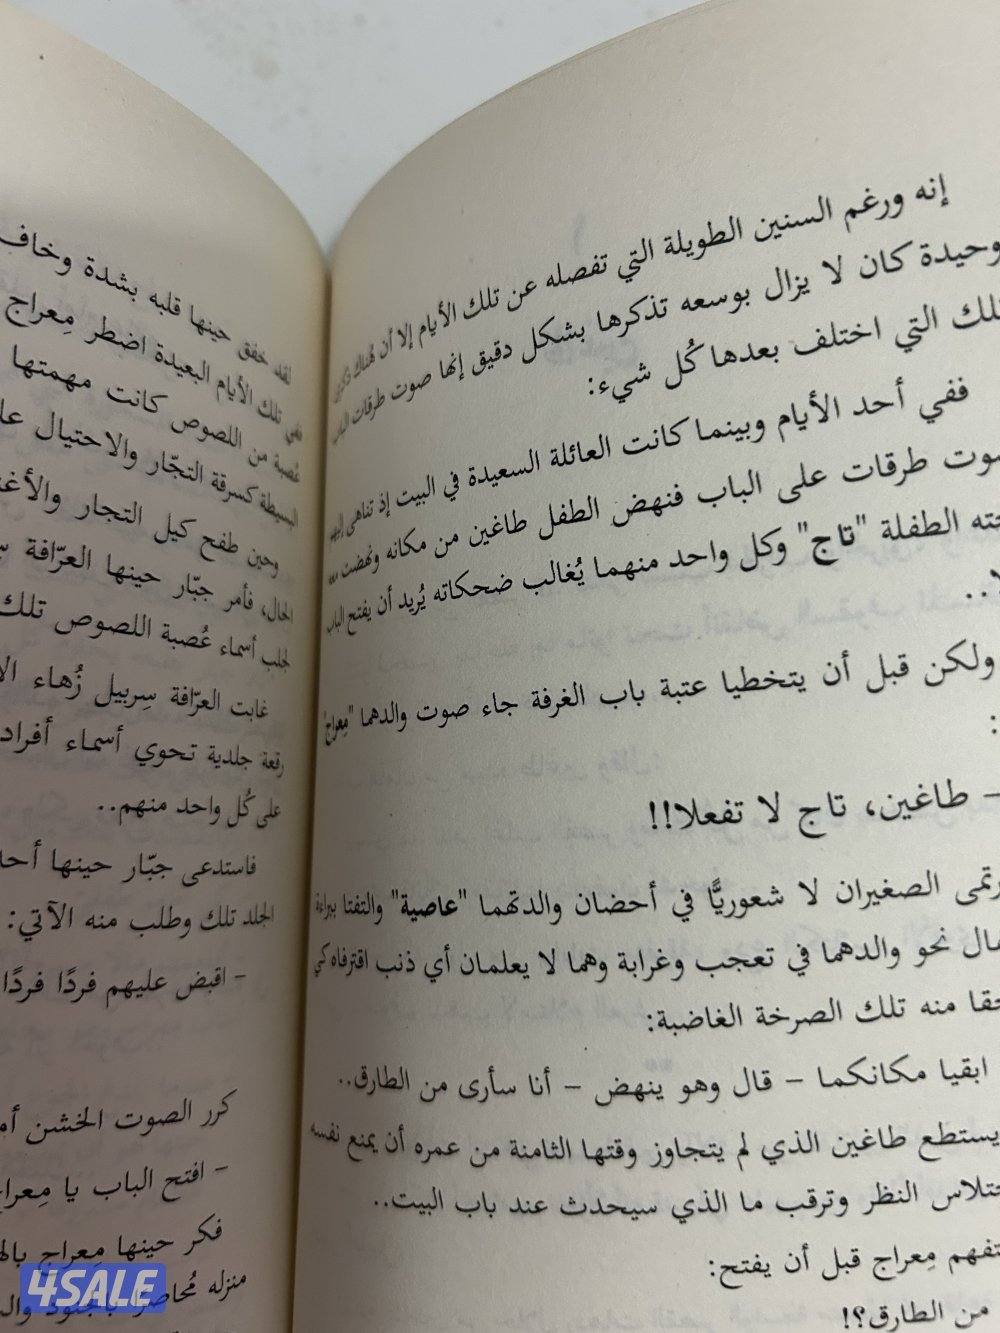 إنه ورغم السنين الطويلة التي تفصله عن تلك الأيام إلا أن هُناك ذكرى
وحيدة كان لا يزال بوسعه تذكرها بشكل دقيق إنها صوت طرقات الباب
تلك التي اختلف بعدها كُل شيء:
ففي أحد الأيام وبينما كانت العائلة السعيدة في البيت إذ تناهى إليهم
صوت طرقات على الباب فنهض الطفل طاغين من مكانه ونهضت معه
الطفلة "تاج" وكل واحد منهما يُغالب ضحكاته يُريد أن يفتح الباب
ولكن قبل أن يتخطيا عتبة باب الغرفة جاء صوت والدهما "مِعراج"
:
- طاغين، تاج لا تفعلا!!
الصغيران لا شعوريًّا في أحضان والدتهما "عاصية" والتفتا ببراءة
نحو والدهما في تعجب وغرابة وهما لا يعلمان أي ذنب اقترفاه كي
منه تلك الصرخة الغاضبة:
ابقيا مكانكما - قال وهو ينهض - أنا سأرى من الطارق..
يستطع طاغين الذي لم يتجاوز وقتها الثامنة من عمره أن يمنع نفسه
النظر وترقب ما الذي سيحدث عند باب البيت..
مِعراج قبل أن يفتح:
من الطارق؟!
لقد خفق حينها قلبه بشدة وخاف
ففي تلك الأيام البعيدة اضطر مِعراج
عُصبة من اللصوص كانت مهمتها
البسيطة كسرقة التجّار والاحتيال
وحين طفح كيل التجار
الحال، فأمر جبّار حينها العرّافة
لجلب أسماء عُصبة اللصوص تلك
غابت العرّافة سِربيل زُهاء
رقعة جلدية تحوي أسماء أفراد
على كُل واحد منهم..
فاستدعى جبّار حينها
الجلد تلك وطلب منه الآتي:
- اقبض عليهم فردًا فردًا
كرر الصوت الخشن
- افتح الباب يا مِعراج
فكر حينها مِعراج
منزله مُحاصرًا بجنود
4SALE